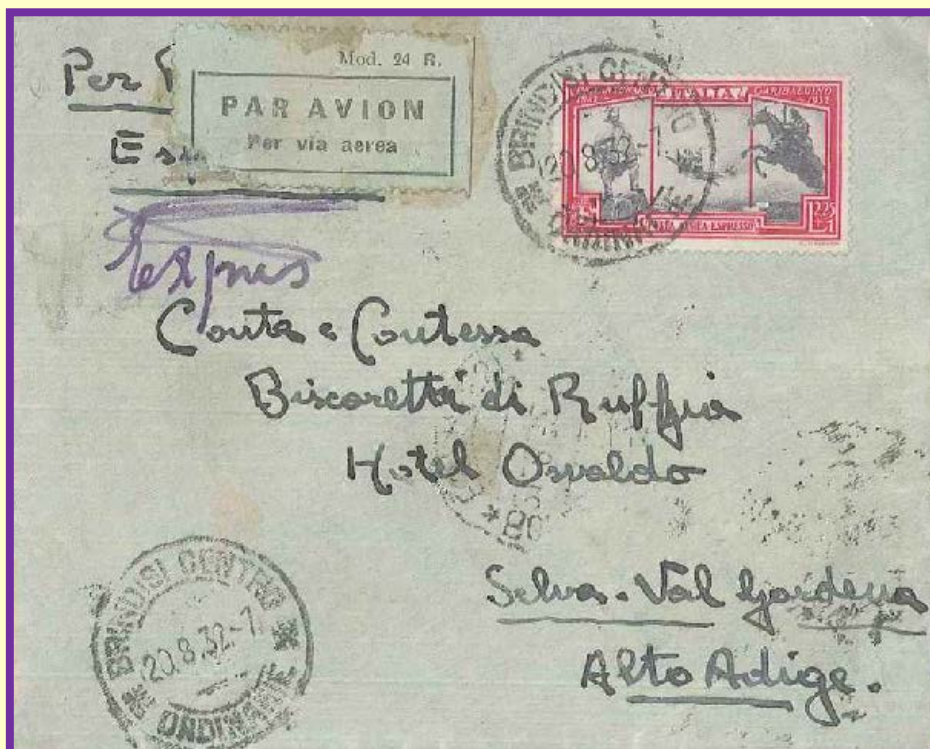 Per
Mod. 24 R.
PAR AVION
Per via aerea
Espresso
BRINDISI CENTRO
20.8.32-7
ORDINARIE
ITALIA
GARIBALDINO
1932
POSTA AEREA ESPRESSO
2,25
Conte e Contessa
Biscaretti di Ruffia
Hotel Osvaldo
Selva - Val Gardena
Alto Adige.
BRINDISI CENTRO
20.8.32-7
ORDINARIE